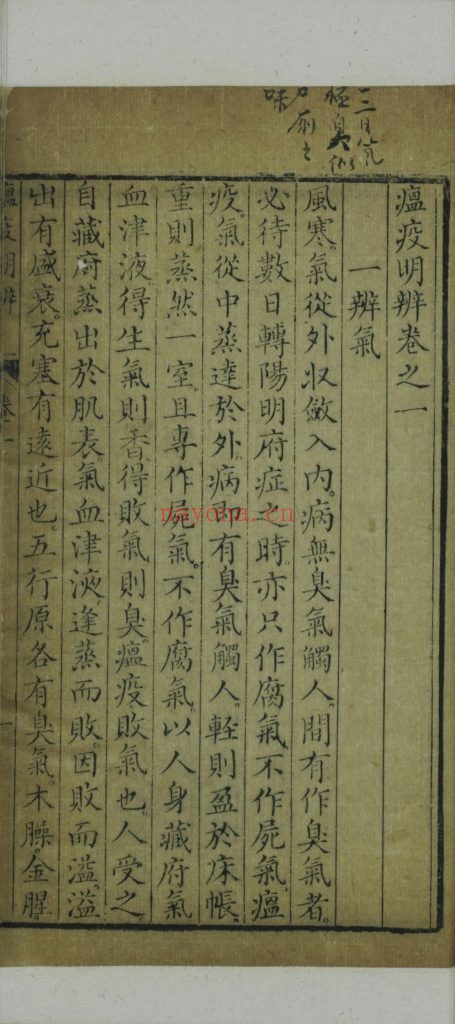 瘟疫明辨卷之一
一辨氣
風寒。氣從外収斂入内。病無臭氣觸人。間有作臭氣者。
必待數日轉陽明府症之時。亦只作腐氣。不作屍氣。瘟
疫。氣從中蒸達於外。病即有臭氣觸人。輕則盈於床帳。
重則蒸然一室。且專作屍氣。不作腐氣。以人身藏府氣
血津液得生氣則香。得敗氣則臭。瘟疫敗氣也。人受之。
自藏府蒸出於肌表。氣血津液。逢蒸而敗。因敗而溢。溢
出有盛衰。充塞有遠近也。五行原各有臭氣。木臊。金腥。
瘟疫明辨
卷一
一
一二日氣
極臭似
石扇之
味
nayona.cn